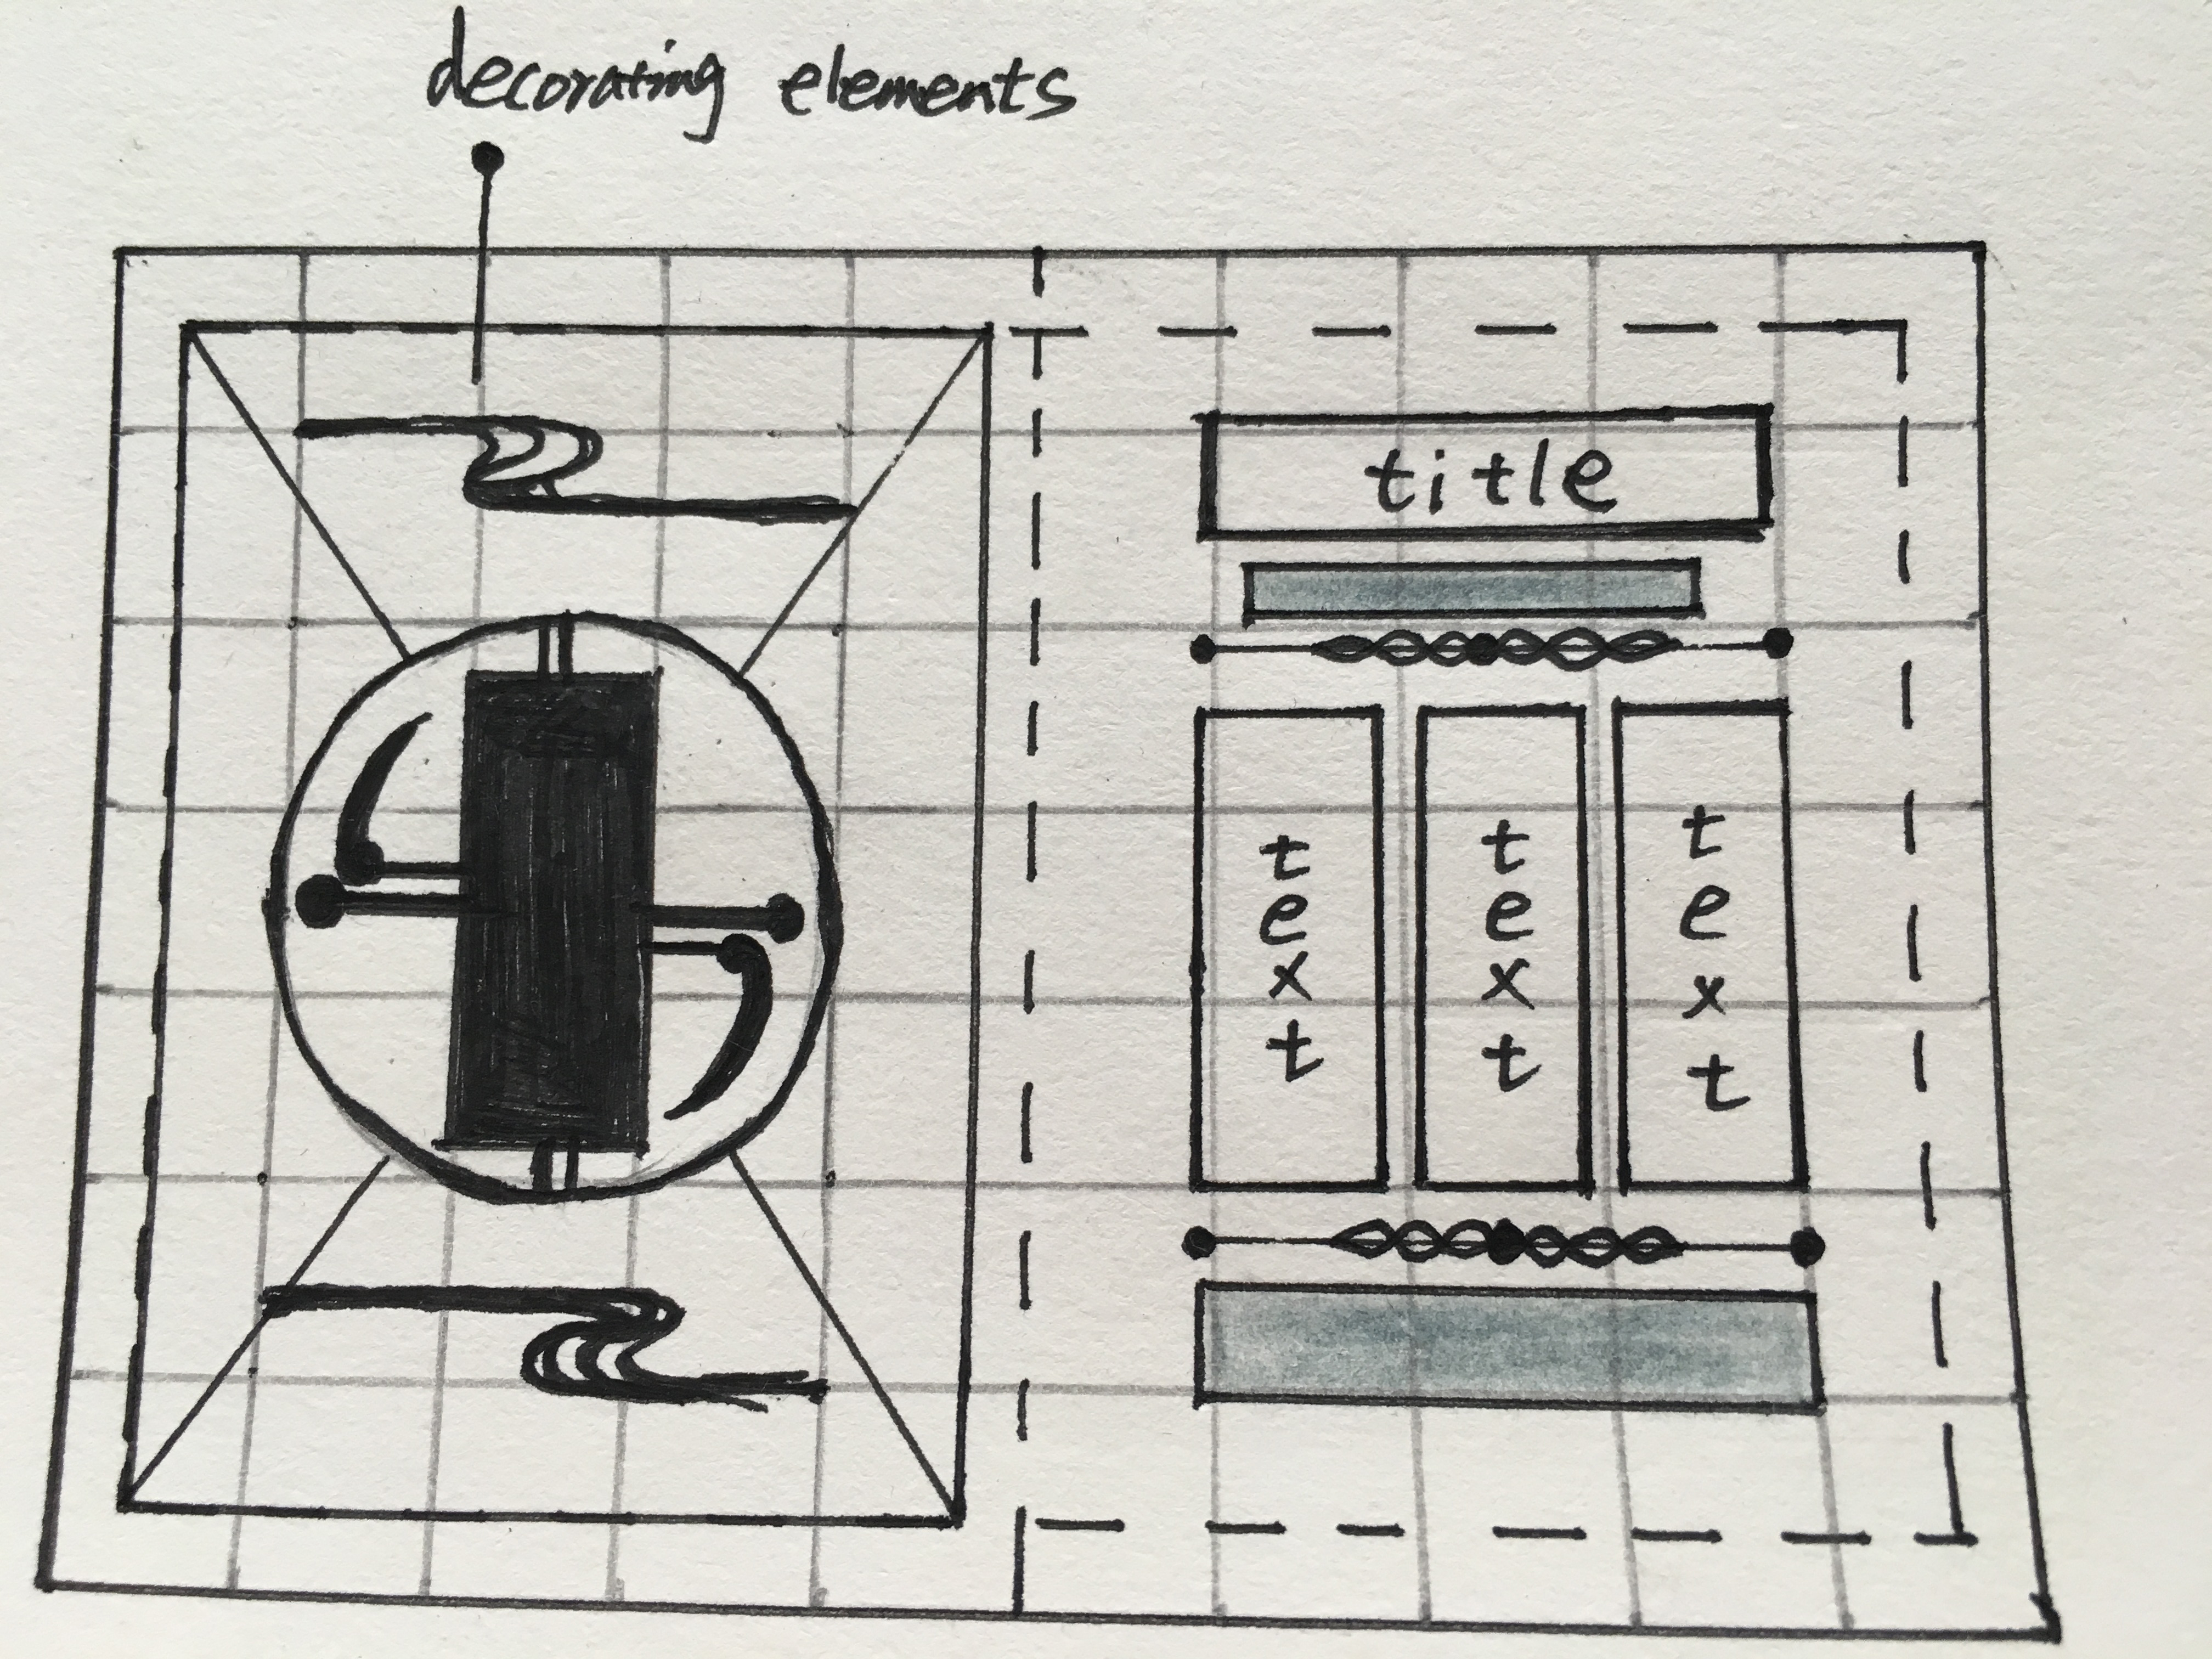 decorating elements
title
text
text
text